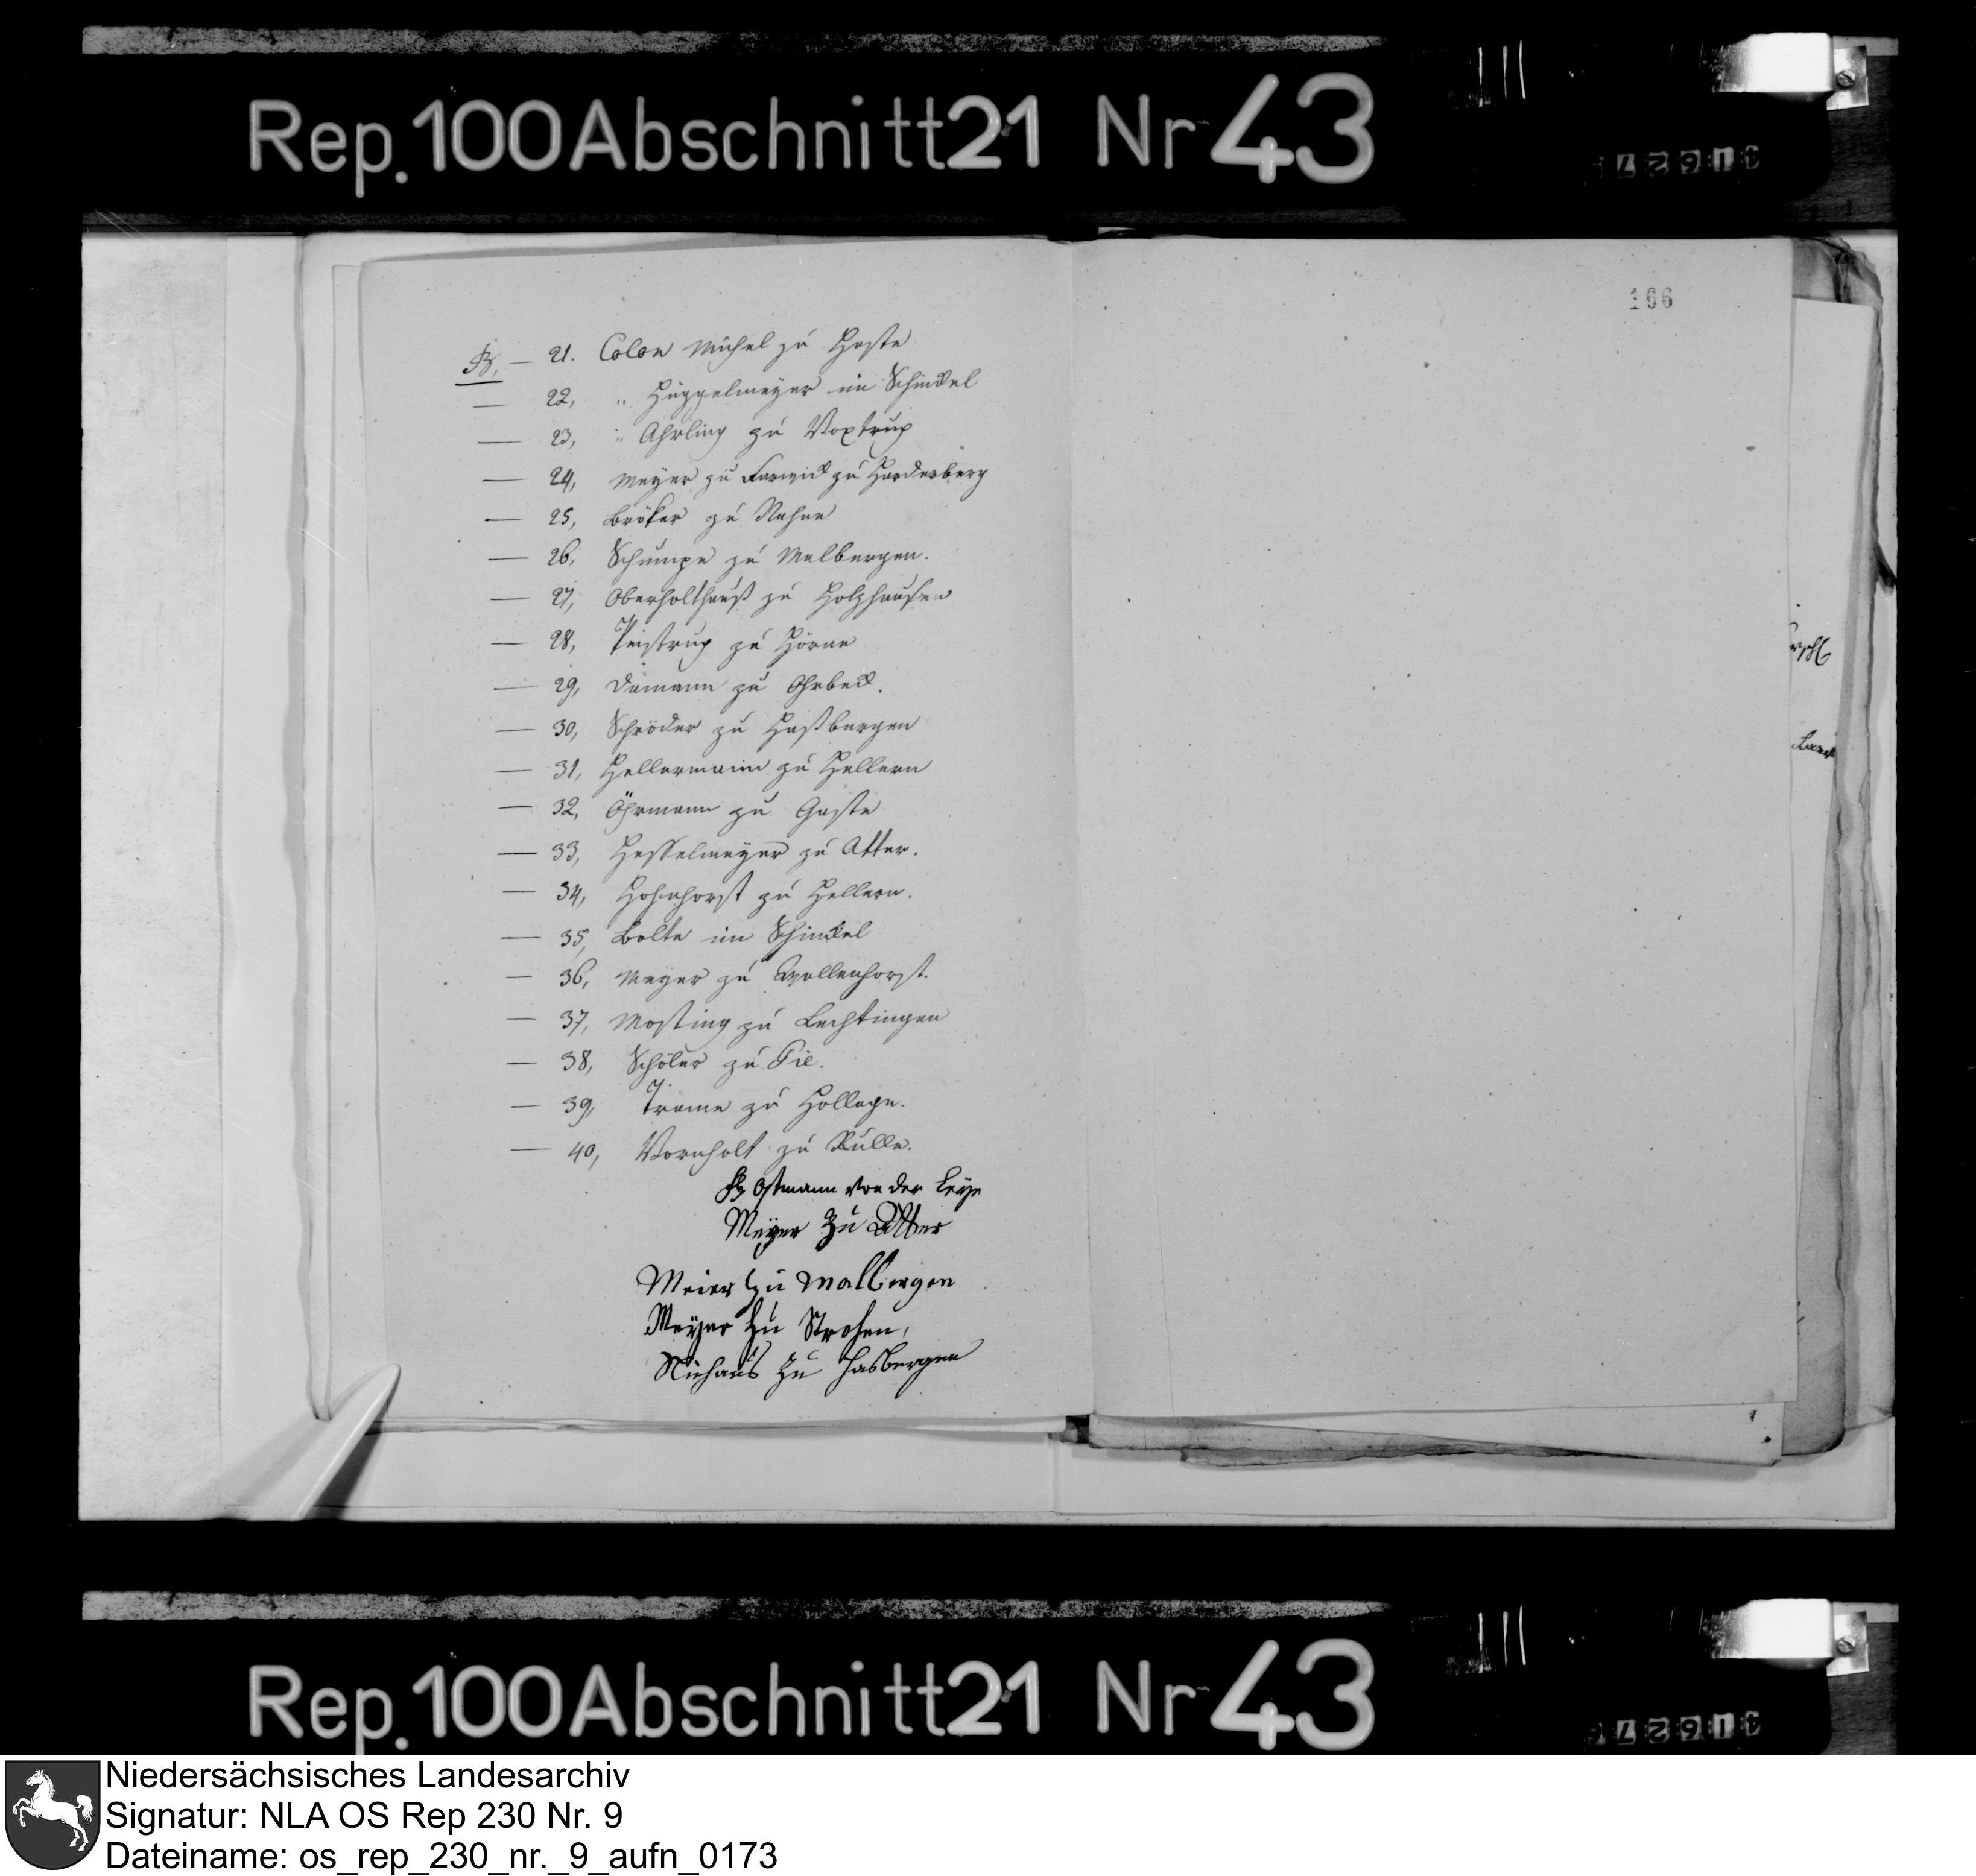 Rep. 100 Abschnitt 21 Nr 43
166
B. — 21. Colon Michel zu Haste
— 22, " Hüggelmeyer im Schinckel
— 23, " Ahrling zu Voxtrup
— 24, Meyer zu Farwick zu Harderberg
— 25, Bröker zu Nahne
— 26, Schumpe zu Malbergen.
— 27, Oberholthauß zu Holzhausen
— 28, Peistrup zu Hörne
— 29, Dümann zu Ohrbeck.
— 30, Schröder zu Haßbergen
— 31, Hellermann zu Hellern
— 32, Öhrmann zu Gaste
— 33, Hesselmeyer zu Atter.
— 34, Hohnhorst zu Hellern.
— 35, Bolte im Schinckel
— 36, Meyer zu
— 37, Mosting zu Lechtingen
— 38, Schöler zu Pie.
— 39, Trame zu Hollage.
— 40, Vornholt zu Rulle.
Ostmann von der Leye
Meyer zu Atter
Meier zu Malbergen
Meyer zu Strohen,
Niehaus zu Hasbergen
Rep. 100 Abschnitt 21 Nr 43
Niedersächsisches Landesarchiv
Signatur: NLA OS Rep 230 Nr. 9
Dateiname: os_rep_230_nr._9_aufn_0173